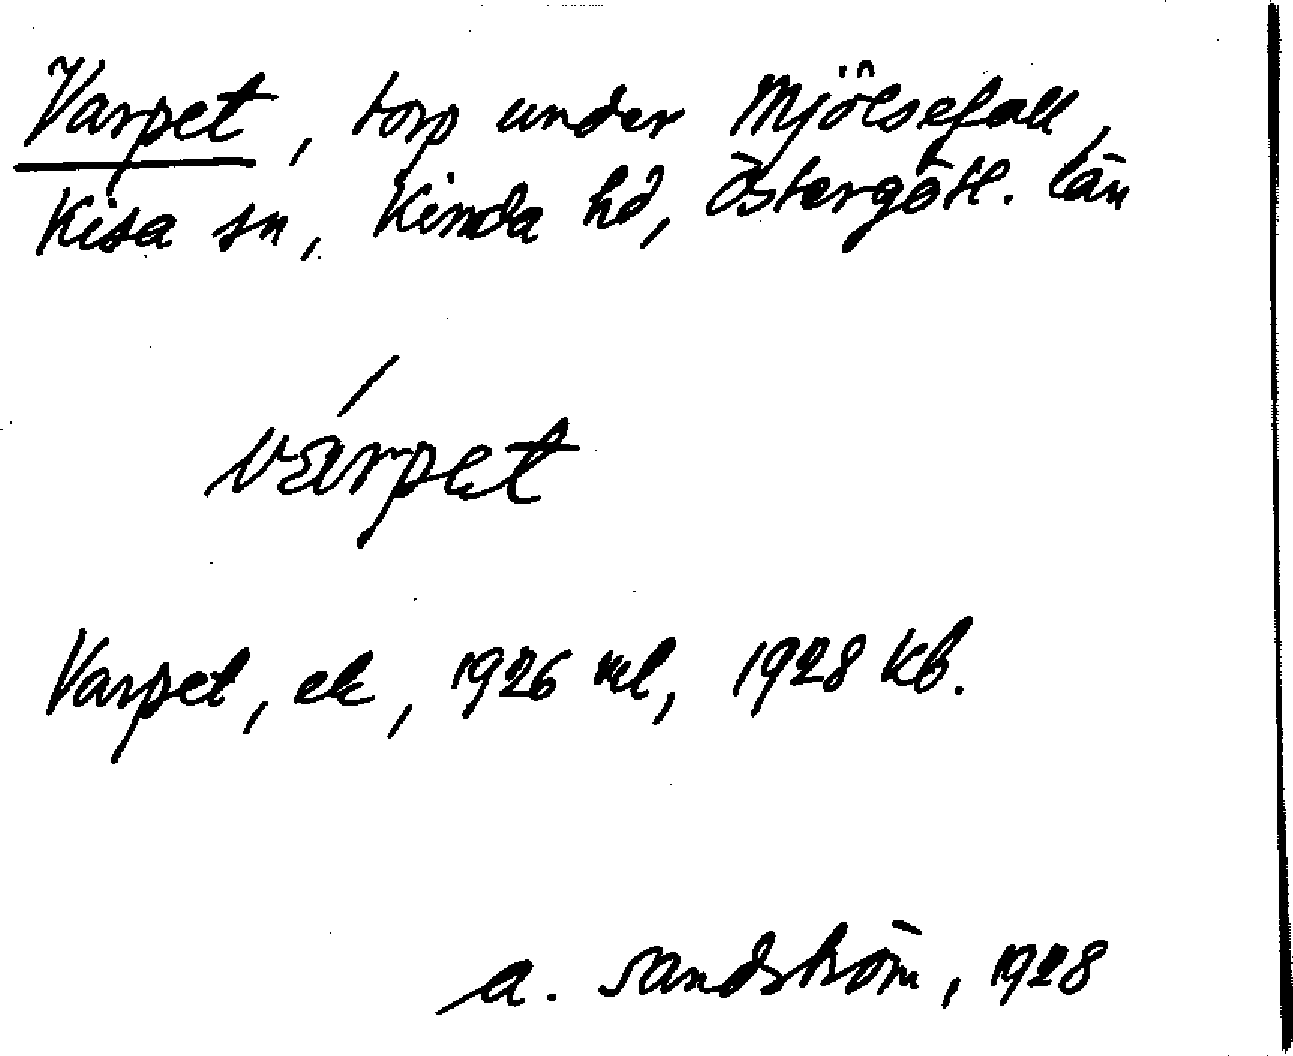 Varpet, torp under Mjölsefall,
Kisa sn, Kinda hd, Östergötl. län
várpet
Varpet, ek, 1926 ml, 1928 kb.
A. Sandström, 1928